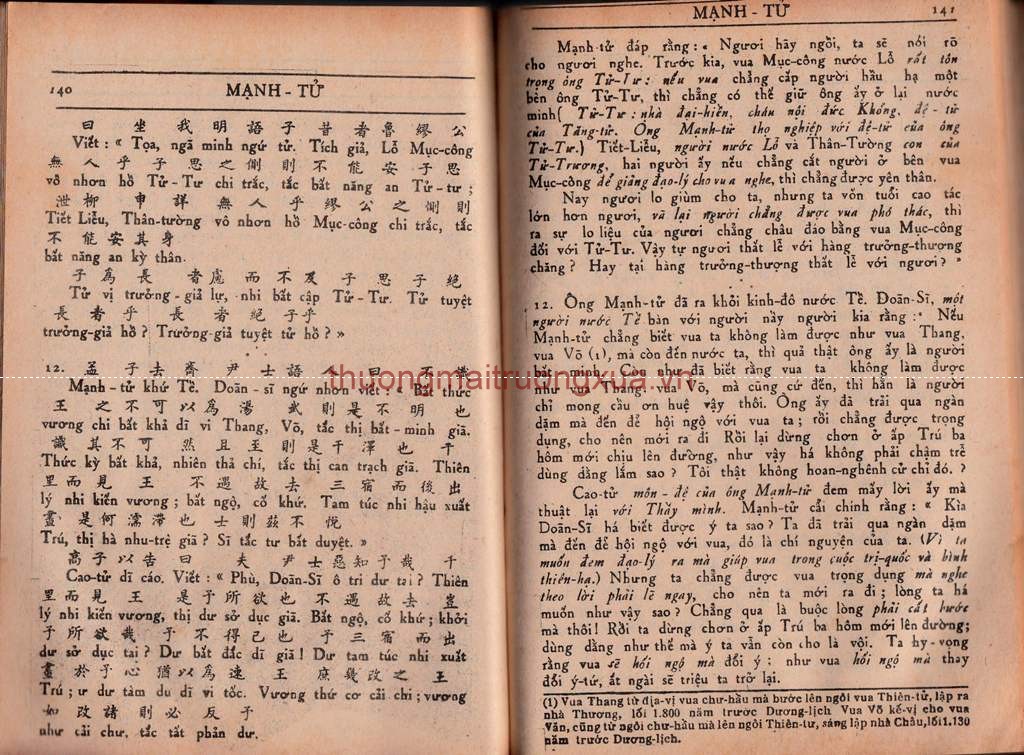 140 MẠNH - TỬ
曰 坐 我 明 語 子 昔 者 魯 繆 公
Viết : « Tọa, ngã minh ngứ tử. Tích giả, Lỗ Mục-công
無 人 乎 子 思 之 側 則 不 能 安 子 思
vô nhơn hồ Tử - Tư chi trắc, tắc bất năng an Tử - tư ;
泄 柳 申 詳 無 人 乎 繆 公 之 側 則
Tiết Liễu, Thân-tường vô nhơn hồ Mục-công chi trắc, tắc
不 能 安 其 身
bất năng an kỳ thân.
子 爲 長 者 慮 而 不 及 子 思 子 絶
Tử vị trưởng - giả lự, nhi bất cập Tử - Tư. Tử tuyệt
長 者 乎 長 者 絶 子 乎
trưởng-giả hồ ? Trưởng-giả tuyệt tử hồ ? »
12. 孟 子 去 齊 尹 士 語 人 曰 不 識
Mạnh - tử khứ Tề. Doãn - sĩ ngứ nhơn viết : « Bất thức
王 之 不 可 以 爲 湯 武 則 是 不 明 也
vương chi bất khả dĩ vi Thang, Võ, tắc thị bất - minh giã.
識 其 不 可 然 且 至 則 是 干 澤 也 千
Thức kỳ bất khả, nhiên thả chí, tắc thị can trạch giã. Thiên
里 而 見 王 不 遇 故 去 三 宿 而 後 出
lý nhi kiến vương ; bất ngộ, cố khứ. Tam túc nhi hậu xuất
晝 是 何 濡 滯 也 士 則 茲 不 悅
Trú, thị hà nhu-trệ giã ? Sĩ tắc tư bất duyệt. »
高 子 以 告 曰 夫 尹 士 惡 知 予 哉 千
Cao-tử dĩ cáo. Viết : « Phù, Doãn-Sĩ ô tri dư tai ? Thiên
里 而 見 王 是 予 所 欲 也 不 遇 故 去 豈
lý nhi kiến vương, thị dư sở dục giã. Bất ngộ, cố khứ ; khởi
予 所 欲 哉 予 不 得 已 也 予 三 宿 而 出
dư sở dục tai ? Dư bất đắc dĩ giã ! Dư tam túc nhi xuất
晝 於 予 心 猶 以 爲 速 王 庶 幾 改 之 王
Trú ; ư dư tâm du dĩ vi tốc. Vương thứ cơ cải chi ; vương
如 改 諸 則 必 反 予
như cải chư, tắc tất phản dư.
MẠNH - TỬ 141
Mạnh-tử đáp rằng : « Ngươi hãy ngồi, ta sẽ nói rõ
cho ngươi nghe. Trước kia, vua Mục-công nước Lỗ rất tôn
trọng ông Tử-Tư : nếu vua chẳng cắp người hầu hạ một
bên ông Tử-Tư, thì chẳng có thể giữ ông ấy ở lại nước
mình ( Tử-Tư : nhà đại-hiền, cháu nội đức Khổng, đệ - tử
của Tăng-tử. Ông Mạnh-tử thọ nghiệp với đệ-tử của ông
Tử-Tư.) Tiết-Liễu, người nước Lỗ và Thân-Tường con của
Tử-Trương, hai người ấy nếu chẳng cắt người ở bên vua
Mục-công để giảng đạo-lý cho vua nghe, thì chẳng được yên thân.
Nay ngươi lo giùm cho ta, nhưng ta vốn tuổi cao tác
lớn hơn ngươi, vả lại ngươi chẳng được vua phó thác, thì
ra sự lo liệu của ngươi chẳng châu đáo bằng vua Mục-công
đối với Tử-Tư. Vậy tự ngươi thất lễ với hàng trưởng-thượng
chăng ? Hay tại hàng trưởng-thượng thất lễ với ngươi ? »
12. Ông Mạnh-tử đã ra khỏi kinh-đô nước Tề. Doãn-Sĩ, một
người nước Tề bàn với người này người kia rằng : « Nếu
Mạnh-tử chẳng biết vua ta không làm được như vua Thang,
vua Võ (1), mà còn đến nước ta, thì quả thật ông ấy là người
bất minh. Còn như đã biết rằng vua ta không làm được
như vua Thang, vua Võ, mà cũng cứ đến, thì hẳn là người
chỉ mong cầu ơn huệ vậy thôi. Ông ấy đã trải qua ngàn
dặm mà đến để hội ngộ với vua ta ; rồi chẳng được trọng
dụng, cho nên mới ra đi Rồi lại dừng chơn ở ấp Trú ba
hôm mới chịu lên đường, như vậy há không phải chậm trễ
dùng dằng lắm sao ? Tôi thật không hoan-nghênh cử chỉ đó. ?
Cao-tử môn - đệ của ông Mạnh-tử đem mấy lời ấy mà
thuật lại với Thầy mình. Mạnh-tử cải chính rằng : « Kìa
Doãn-Sĩ há biết được ý ta sao ? Ta đã trải qua ngàn dặm
mà đến để hội ngộ với vua, đó là chí nguyện của ta. (Vì ta
muốn đem đạo-lý ra mà giúp vua trong cuộc trị-quốc và bình
thiên-hạ.) Nhưng ta chẳng được vua trọng dụng mà nghe
theo lời phải lẽ ngay, cho nên ta mới ra đi ; lòng ta há
muốn như vậy sao ? Chẳng qua là buộc lòng phải cất bước
mà thôi ! Rồi ta dừng chơn ở ấp Trú ba hôm mới lên đường ;
dùng dằng như thế mà ý ta vẫn còn cho là vội. Ta hy-vọng
rằng vua sẽ hối ngộ mà đổi ý : như vua hối ngộ mà thay
đổi ý-tứ, ắt ngài sẽ triệu ta trở lại.
(1) Vua Thang từ địa-vị vua chư-hầu mà bước lên ngôi vua Thiên-tử, lập ra
nhà Thương, lối 1.800 năm trước Dương-lịch Vua Võ kế-vị cho vua
Văn, cũng từ ngôi chư-hầu mà lên ngôi Thiên-tử, sáng lập nhà Châu, lối 1.130
năm trước Dương-lịch.
thuongmaitruongxua.vn